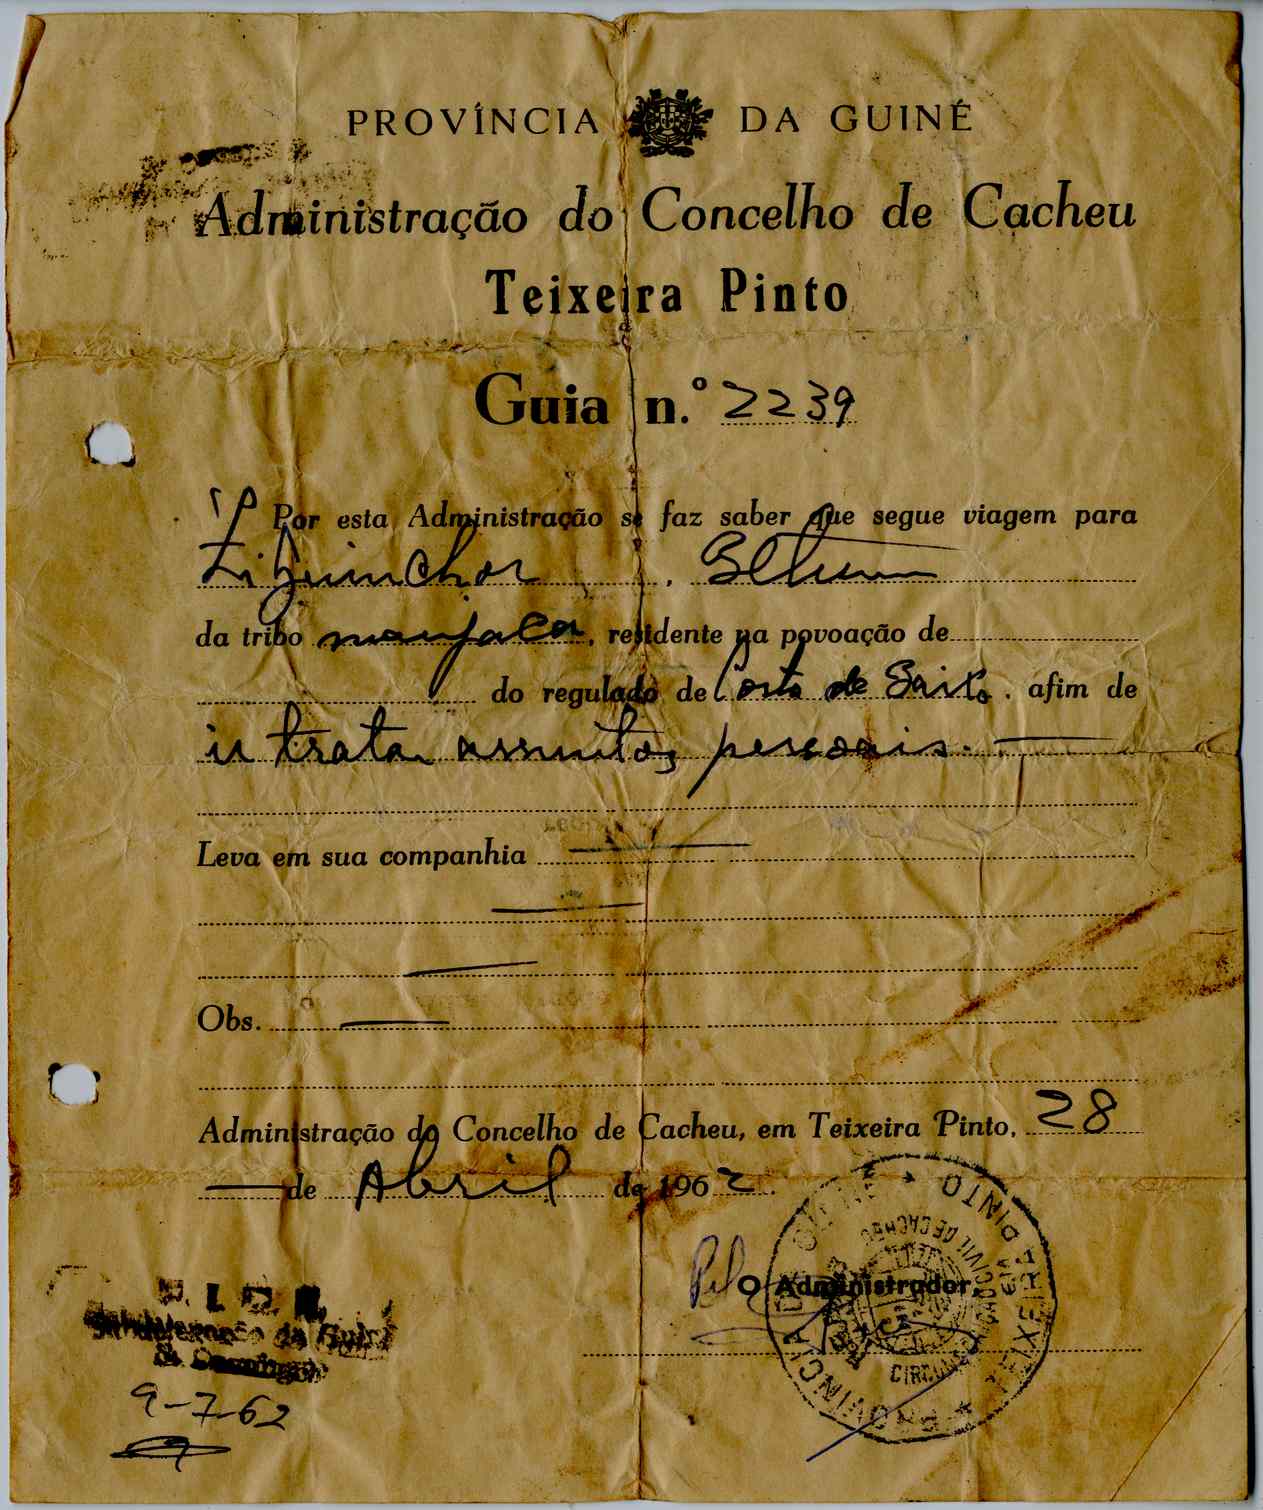 PROVÍNCIA DA GUINÉ
Administração do Concelho de Cacheu
Teixeira Pinto
Guia n.º 2239
Por esta Administração se faz saber que segue viagem para
Ziguinchor,
da tribo manjaca, residente na povoação de
do regulado de Costa de Baixo, afim de
ir tratar assuntos pessoais.
Leva em sua companhia
Obs.
Administração do Concelho de Cacheu, em Teixeira Pinto, 28
de Abril de 1962.
Pel O Administrador
PROVÍNCIA TEIXEIRA PINTO
CIVIL DE CACHEU
P. I. D. E.
Subdelegação da Guiné
S. Domingos
9-7-62